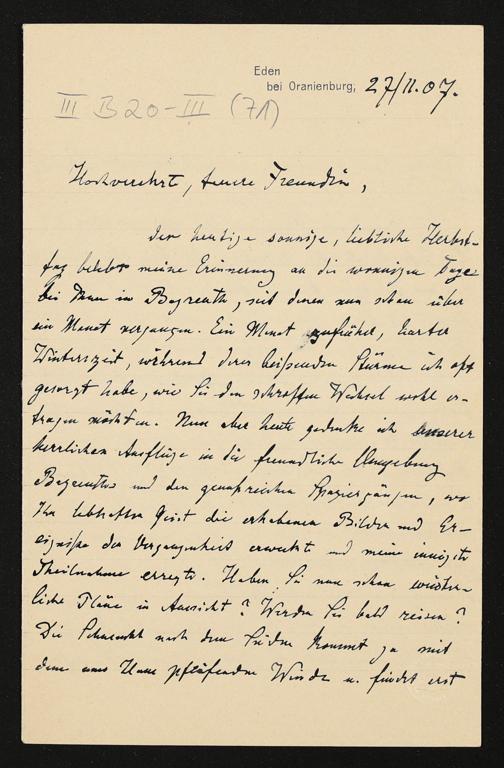 Eden
bei Oranienburg, 27/11.07.
III B 20-III (71)
Hochverehrt, teure Freundin,
der heutige sonnige, liebliche Herbst-
tag belebt meine Erinnerung an die wonnigen Tage
bei Ihnen in Bayreuth, seit denen nun schon über
ein Monat vergangen. Ein Monat harter
Winterszeit, während deren beißenden Stürme ich oft
gesorgt habe, wie Sie den schroffen Wechsel wohl er-
tragen möchten. Nun aber heute gedenke ich unserer
herrlichen Ausflüge in die freundliche Umgebung
Bayreuths und den genussreichen Spaziergängen, wo
Ihr lebhafter Geist die erhabenen Bilder und Er-
eignisse der Vergangenheit erweckt und meine innigste
Theilnahme erregte. Haben Sie nun schon winter-
liche Pläne in Aussicht? Werden Sie bald reisen?
Die Sehnsucht nach dem Süden kommt ja mit
dem ums Haus pfeifenden Winde u. findet erst